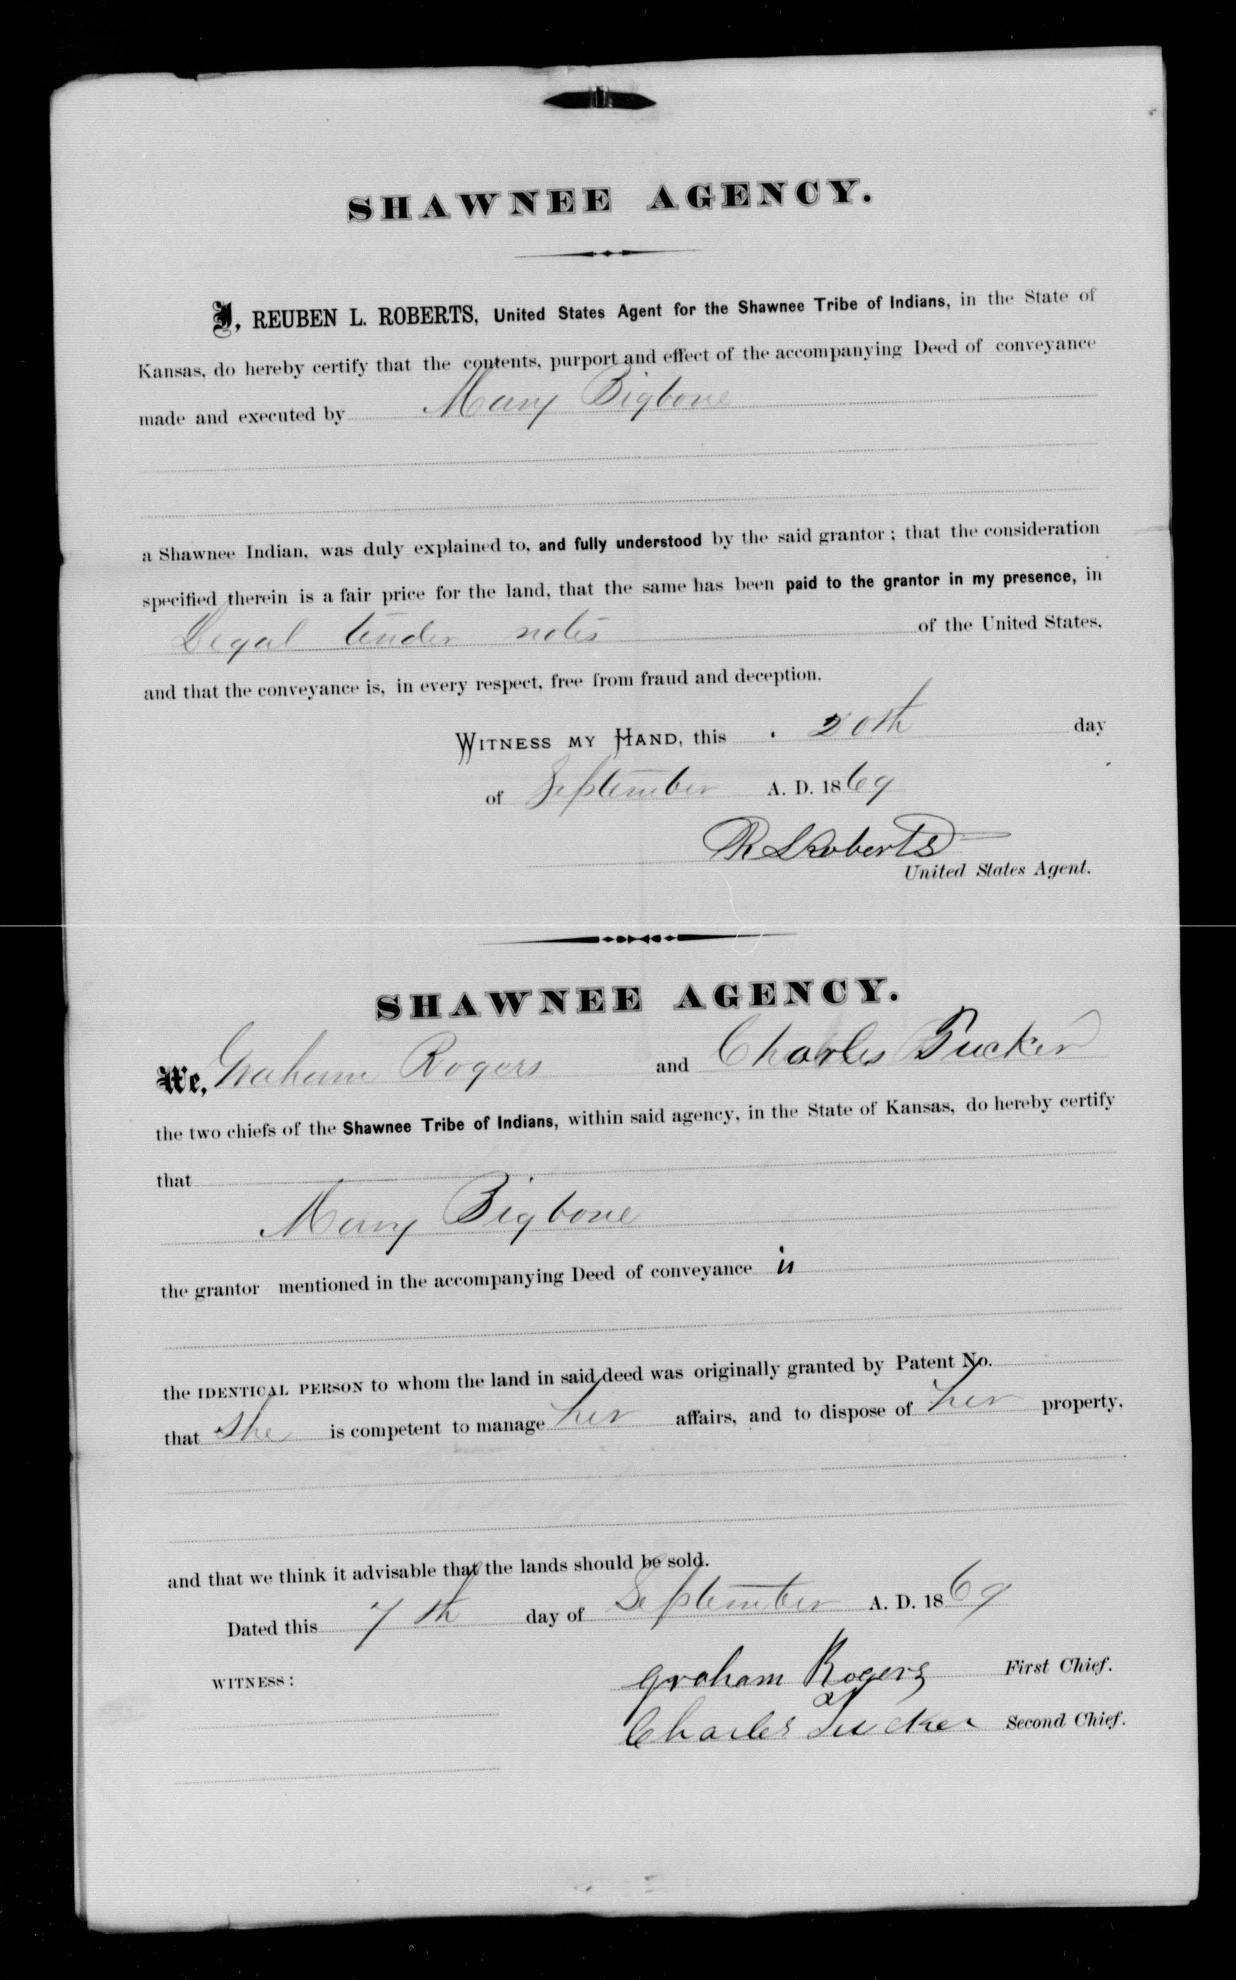 SHAWNEE AGENCY.
I, REUBEN L. ROBERTS, United States Agent for the Shawnee Tribe of Indians, in the State of
Kansas, do hereby certify that the contents, purport and effect of the accompanying Deed of conveyance
made and executed by Mary Bigbone
a Shawnee Indian, was duly explained to, and fully understood by the said grantor; that the consideration
specified therein is a fair price for the land, that the same has been paid to the grantor in my presence, in
Legal tender notes of the United States,
and that the conveyance is, in every respect, free from fraud and deception.
WITNESS MY HAND, this 20th day
of September A. D. 1869
R L Roberts
United States Agent.
SHAWNEE AGENCY.
We, Graham Rogers and Charles Tucker
the two chiefs of the Shawnee Tribe of Indians, within said agency, in the State of Kansas, do hereby certify
that
Mary Bigbone
the grantor mentioned in the accompanying Deed of conveyance is
the IDENTICAL PERSON to whom the land in said deed was originally granted by Patent No.
that she is competent to manage her affairs, and to dispose of her property,
and that we think it advisable that the lands should be sold.
Dated this 7th day of September A. D. 1869
WITNESS: Graham Rogers First Chief.
Charles Tucker Second Chief.